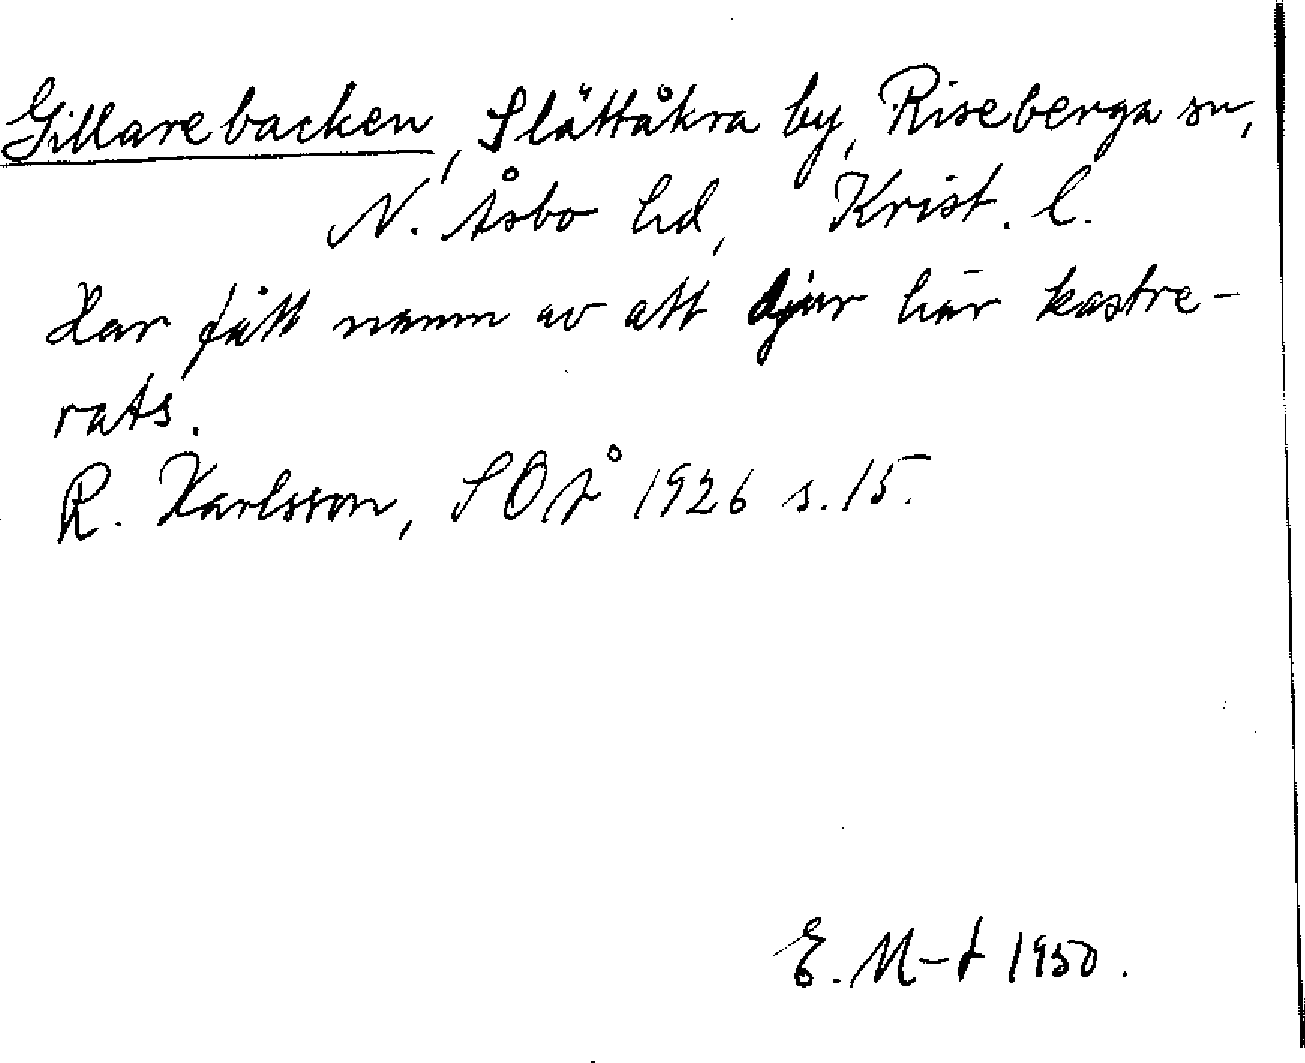 Gillarebacken, Slättåkra by, Riseberga sn,
N. Åsbo hd, Krist. l.
Har fått namn av att djur här kastre-
rats.
R. Karlsson, SOÅ 1926 s. 15.
E. M-t 1950.